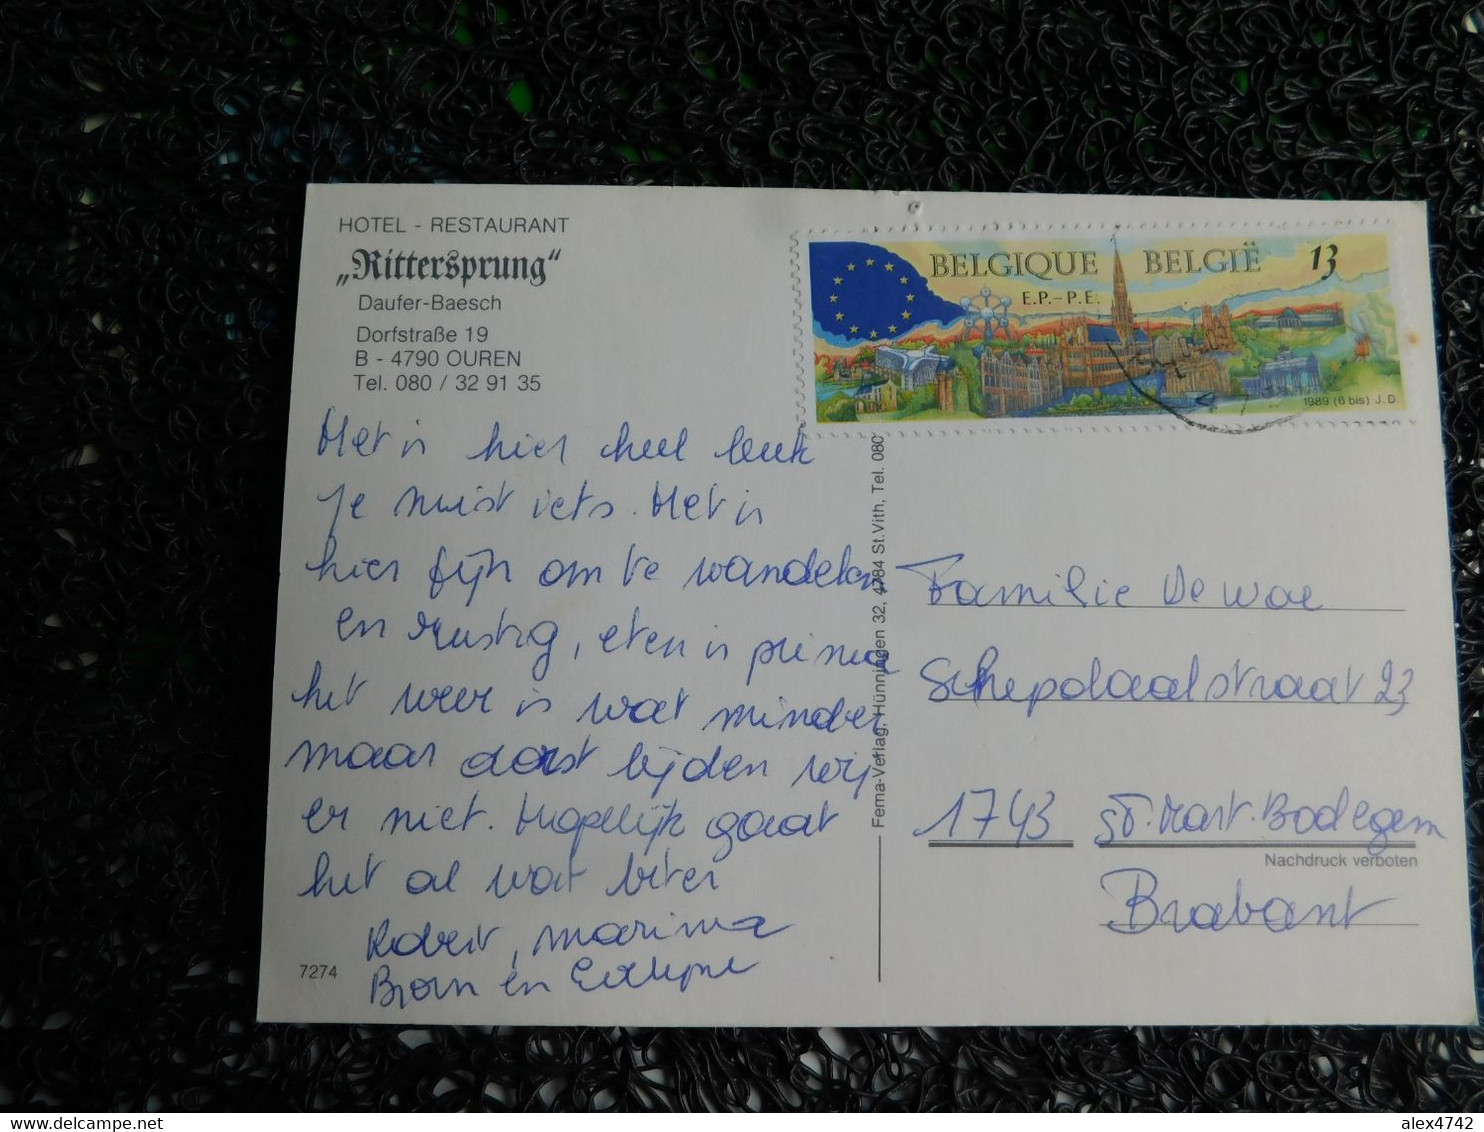 HOTEL - RESTAURANT
„Rittersprung“
Daufer-Baesch
Dorfstraße 19
B - 4790 OUREN
Tel. 080 / 32 91 35
BELGIQUE BELGIË 13
E.P.-P.E.
1989 (6 bis) J.D.
Het is hier heel leuk
Je mist iets. Het is
hier fijn om te wandelen
en rustig, eten is prima
het weer is wat minder
maar daar lijden wij
er niet. Mogelijk gaat
het al wat beter
Robert, Marina
Bjorn en
7274
Fema-Verlag, Hünningen 32, 4784 St.Vith, Tel. 080
Familie De Wae
Schepdaalstraat 23
1743 St. Mart. Bodegem
Nachdruck verboten
Brabant
alex4742